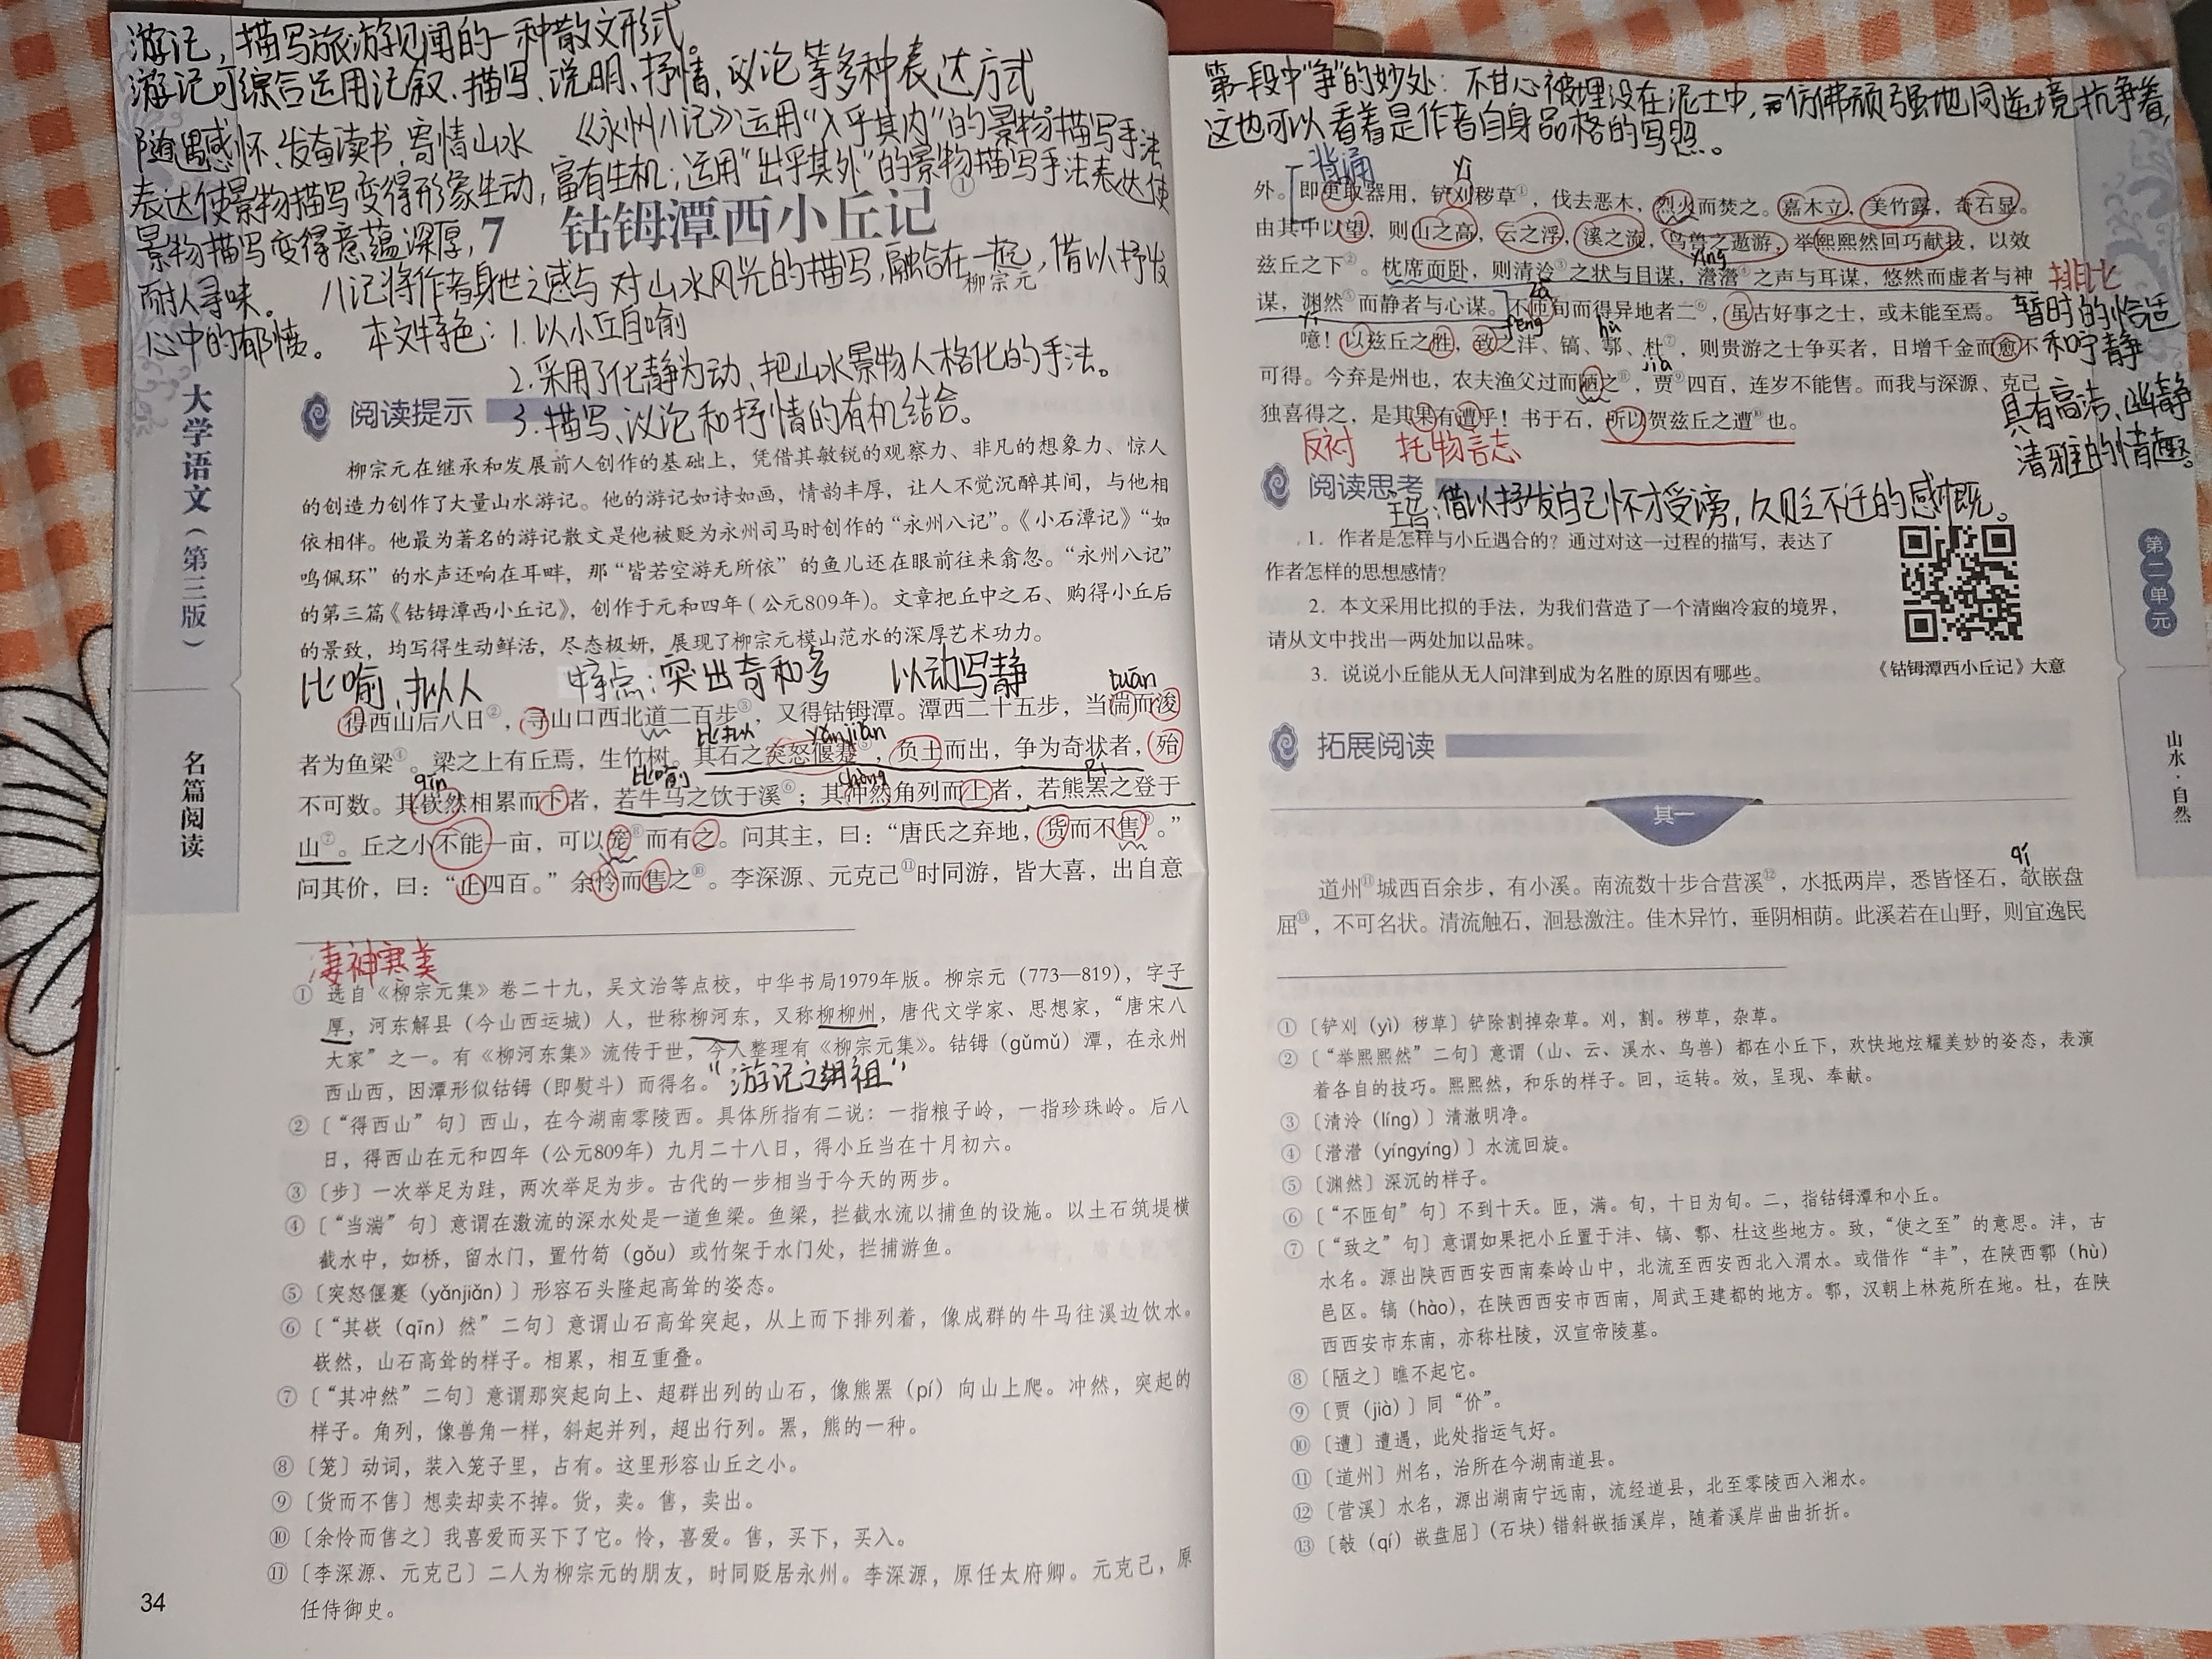 游记，描写旅游见闻的一种散文形式。
游记可综合运用记叙、描写、说明、抒情、议论等多种表达方式
随遇感怀、发奋读书、寄情山水 《永州八记》运用"入乎其内"的景物描写手法
表达使景物描写变得形象生动，富有生机；运用"出乎其外"的景物描写手法表达使
景物描写变得意蕴深厚，
7 钴鉧潭西小丘记①
而耐人寻味。 八记将作者身世之感与对山水风光的描写，融合在一起，借以抒发
柳宗元
心中的郁愤。 本文特色：1.以小丘自喻
2.采用了化静为动、把山水景物人格化的手法。
3.描写、议论和抒情的有机结合。
大学语文（第三版）
名篇阅读
阅读提示
柳宗元在继承和发展前人创作的基础上，凭借其敏锐的观察力、非凡的想象力、惊人
的创造力创作了大量山水游记。他的游记如诗如画，情韵丰厚，让人不觉沉醉其间，与他相
依相伴。他最为著名的游记散文是他被贬为永州司马时创作的“永州八记”。《小石潭记》“如
鸣佩环”的水声还响在耳畔，那“皆若空游无所依”的鱼儿还在眼前往来翕忽。“永州八记”
的第三篇《钴鉧潭西小丘记》，创作于元和四年（公元809年）。文章把丘中之石、购得小丘后
的景致，均写得生动鲜活，尽态极妍，展现了柳宗元模山范水的深厚艺术功力。
比喻、拟人 特点：突出奇和多 以动写静 tuān
得西山后八日②，寻山口西北道二百步③，又得钴鉧潭。潭西二十五步，当湍而浚
比拟 yǎnjiǎn
者为鱼梁④。梁之上有丘焉，生竹树。其石之突怒偃蹇⑤，负土而出，争为奇状者，殆
qīn 比喻 chōng pí
不可数。其嵚然相累而下者，若牛马之饮于溪⑥；其冲然角列而上者，若熊罴之登于
山⑦。丘之小不能一亩，可以笼⑧而有之。问其主，曰：“唐氏之弃地，货而不售⑨。”
问其价，曰：“止四百。”余怜而售之⑩。李深源、元克己⑪时同游，皆大喜，出自意
凄神寒美
① 选自《柳宗元集》卷二十九，吴文治等点校，中华书局1979年版。柳宗元（773—819），字子
厚，河东解县（今山西运城）人，世称柳河东，又称柳柳州，唐代文学家、思想家，“唐宋八
大家”之一。有《柳河东集》流传于世，今人整理有《柳宗元集》。钴鉧（gǔmǔ）潭，在永州
西山西，因潭形似钴鉧（即熨斗）而得名。"游记之鼻祖"
② 〔“得西山”句〕西山，在今湖南零陵西。具体所指有二说：一指粮子岭，一指珍珠岭。后八
日，得西山在元和四年（公元809年）九月二十八日，得小丘当在十月初六。
③ 〔步〕一次举足为跬，两次举足为步。古代的一步相当于今天的两步。
④ 〔“当湍”句〕意谓在激流的深水处是一道鱼梁。鱼梁，拦截水流以捕鱼的设施。以土石筑堤横
截水中，如桥，留水门，置竹笱（gǒu）或竹架于水门处，拦捕游鱼。
⑤ 〔突怒偃蹇（yǎnjiǎn）〕形容石头隆起高耸的姿态。
⑥ 〔“其嵚（qīn）然”二句〕意谓山石高耸突起，从上而下排列着，像成群的牛马往溪边饮水。
嵚然，山石高耸的样子。相累，相互重叠。
⑦ 〔“其冲然”二句〕意谓那突起向上、超群出列的山石，像熊罴（pí）向山上爬。冲然，突起的
样子。角列，像兽角一样，斜起并列，超出行列。罴，熊的一种。
⑧ 〔笼〕动词，装入笼子里，占有。这里形容山丘之小。
⑨ 〔货而不售〕想卖却卖不掉。货，卖。售，卖出。
⑩ 〔余怜而售之〕我喜爱而买下了它。怜，喜爱。售，买下，买入。
⑪ 〔李深源、元克己〕二人为柳宗元的朋友，时同贬居永州。李深源，原任太府卿。元克己，原
任侍御史。
34
第一段中"争"的妙处：不甘心被埋没在泥土中，而仿佛顽强地同逆境抗争着，
这也可以看着是作者自身品格的写照。
背诵 yì
外。即更取器用，铲刈秽草①，伐去恶木，烈火而焚之。嘉木立，美竹露，奇石显。
由其中以望，则山之高，云之浮，溪之流，鸟兽之遨游，举熙熙然回巧献技，以效
yíng
兹丘之下②。枕席而卧，则清泠③之状与目谋，瀯瀯④之声与耳谋，悠然而虚者与神
排比
谋，渊然⑤而静者与心谋。不匝旬而得异地者二⑥，虽古好事之士，或未能至焉。
暂时的恰适
yī zā fēng hù
噫！以兹丘之胜，致之沣、镐、鄠、杜⑦，则贵游之士争买者，日增千金而愈不
和宁静
jià
可得。今弃是州也，农夫渔父过而陋之⑧，贾⑨四百，连岁不能售。而我与深源、克己
独喜得之，是其果有遭乎！书于石，所以贺兹丘之遭⑩也。
具有高洁、幽静
清雅的情趣。
反衬 托物言志
阅读思考
主旨：借以抒发自己怀才受谤，久贬不迁的感慨。
1．作者是怎样与小丘遇合的？通过对这一过程的描写，表达了
作者怎样的思想感情？
2．本文采用比拟的手法，为我们营造了一个清幽冷寂的境界，
请从文中找出一两处加以品味。
3．说说小丘能从无人问津到成为名胜的原因有哪些。
《钴鉧潭西小丘记》大意
第二单元
山水·自然
拓展阅读
其一
qí
道州⑪城西百余步，有小溪。南流数十步合营溪⑫，水抵两岸，悉皆怪石，攲嵌盘
屈⑬，不可名状。清流触石，洄悬激注。佳木异竹，垂阴相荫。此溪若在山野，则宜逸民
① 〔铲刈（yì）秽草〕铲除割掉杂草。刈，割。秽草，杂草。
② 〔“举熙熙然”二句〕意谓（山、云、溪水、鸟兽）都在小丘下，欢快地炫耀美妙的姿态，表演
着各自的技巧。熙熙然，和乐的样子。回，运转。效，呈现、奉献。
③ 〔清泠（líng）〕清澈明净。
④ 〔瀯瀯（yíngyíng）〕水流回旋。
⑤ 〔渊然〕深沉的样子。
⑥ 〔“不匝旬”句〕不到十天。匝，满。旬，十日为旬。二，指钴鉧潭和小丘。
⑦ 〔“致之”句〕意谓如果把小丘置于沣、镐、鄠、杜这些地方。致，“使之至”的意思。沣，古
水名。源出陕西西安西南秦岭山中，北流至西安西北入渭水。或借作“丰”，在陕西鄠（hù）
邑区。镐（hào），在陕西西安市西南，周武王建都的地方。鄠，汉朝上林苑所在地。杜，在陕
西西安市东南，亦称杜陵，汉宣帝陵墓。
⑧ 〔陋之〕瞧不起它。
⑨ 〔贾（jià）〕同“价”。
⑩ 〔遭〕遭遇，此处指运气好。
⑪ 〔道州〕州名，治所在今湖南道县。
⑫ 〔营溪〕水名，源出湖南宁远南，流经道县，北至零陵西入湘水。
⑬ 〔攲（qí）嵌盘屈〕（石块）错斜嵌插溪岸，随着溪岸曲曲折折。